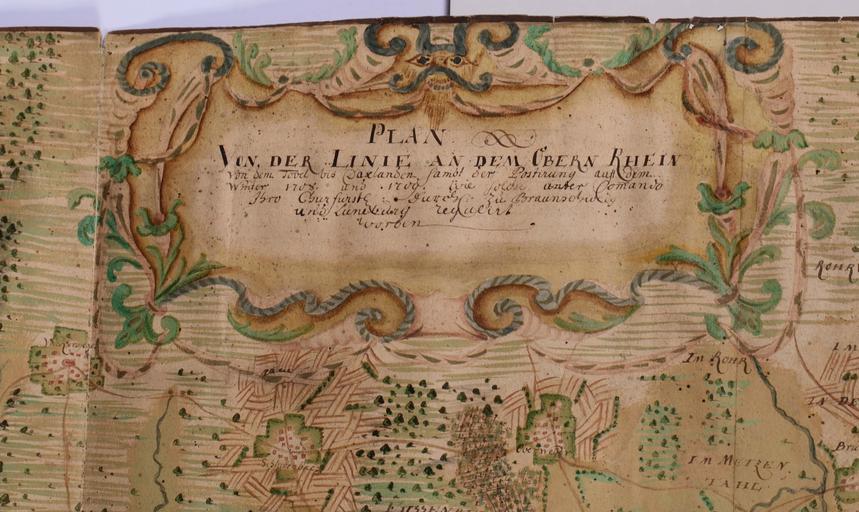 PLAN
VON DER LINIE AN DEM OBERN RHEIN
Von dem Tobel bis Daxlanden sambt der Postirung auff dem
Winter 1708 und 1709. Wie solche unter Comando
Ihro Churfürstl: Durchl: zu Braunschweig
und Lüneburg regulirt
worden
IN ROHR
IN MOTZEN
TAHL